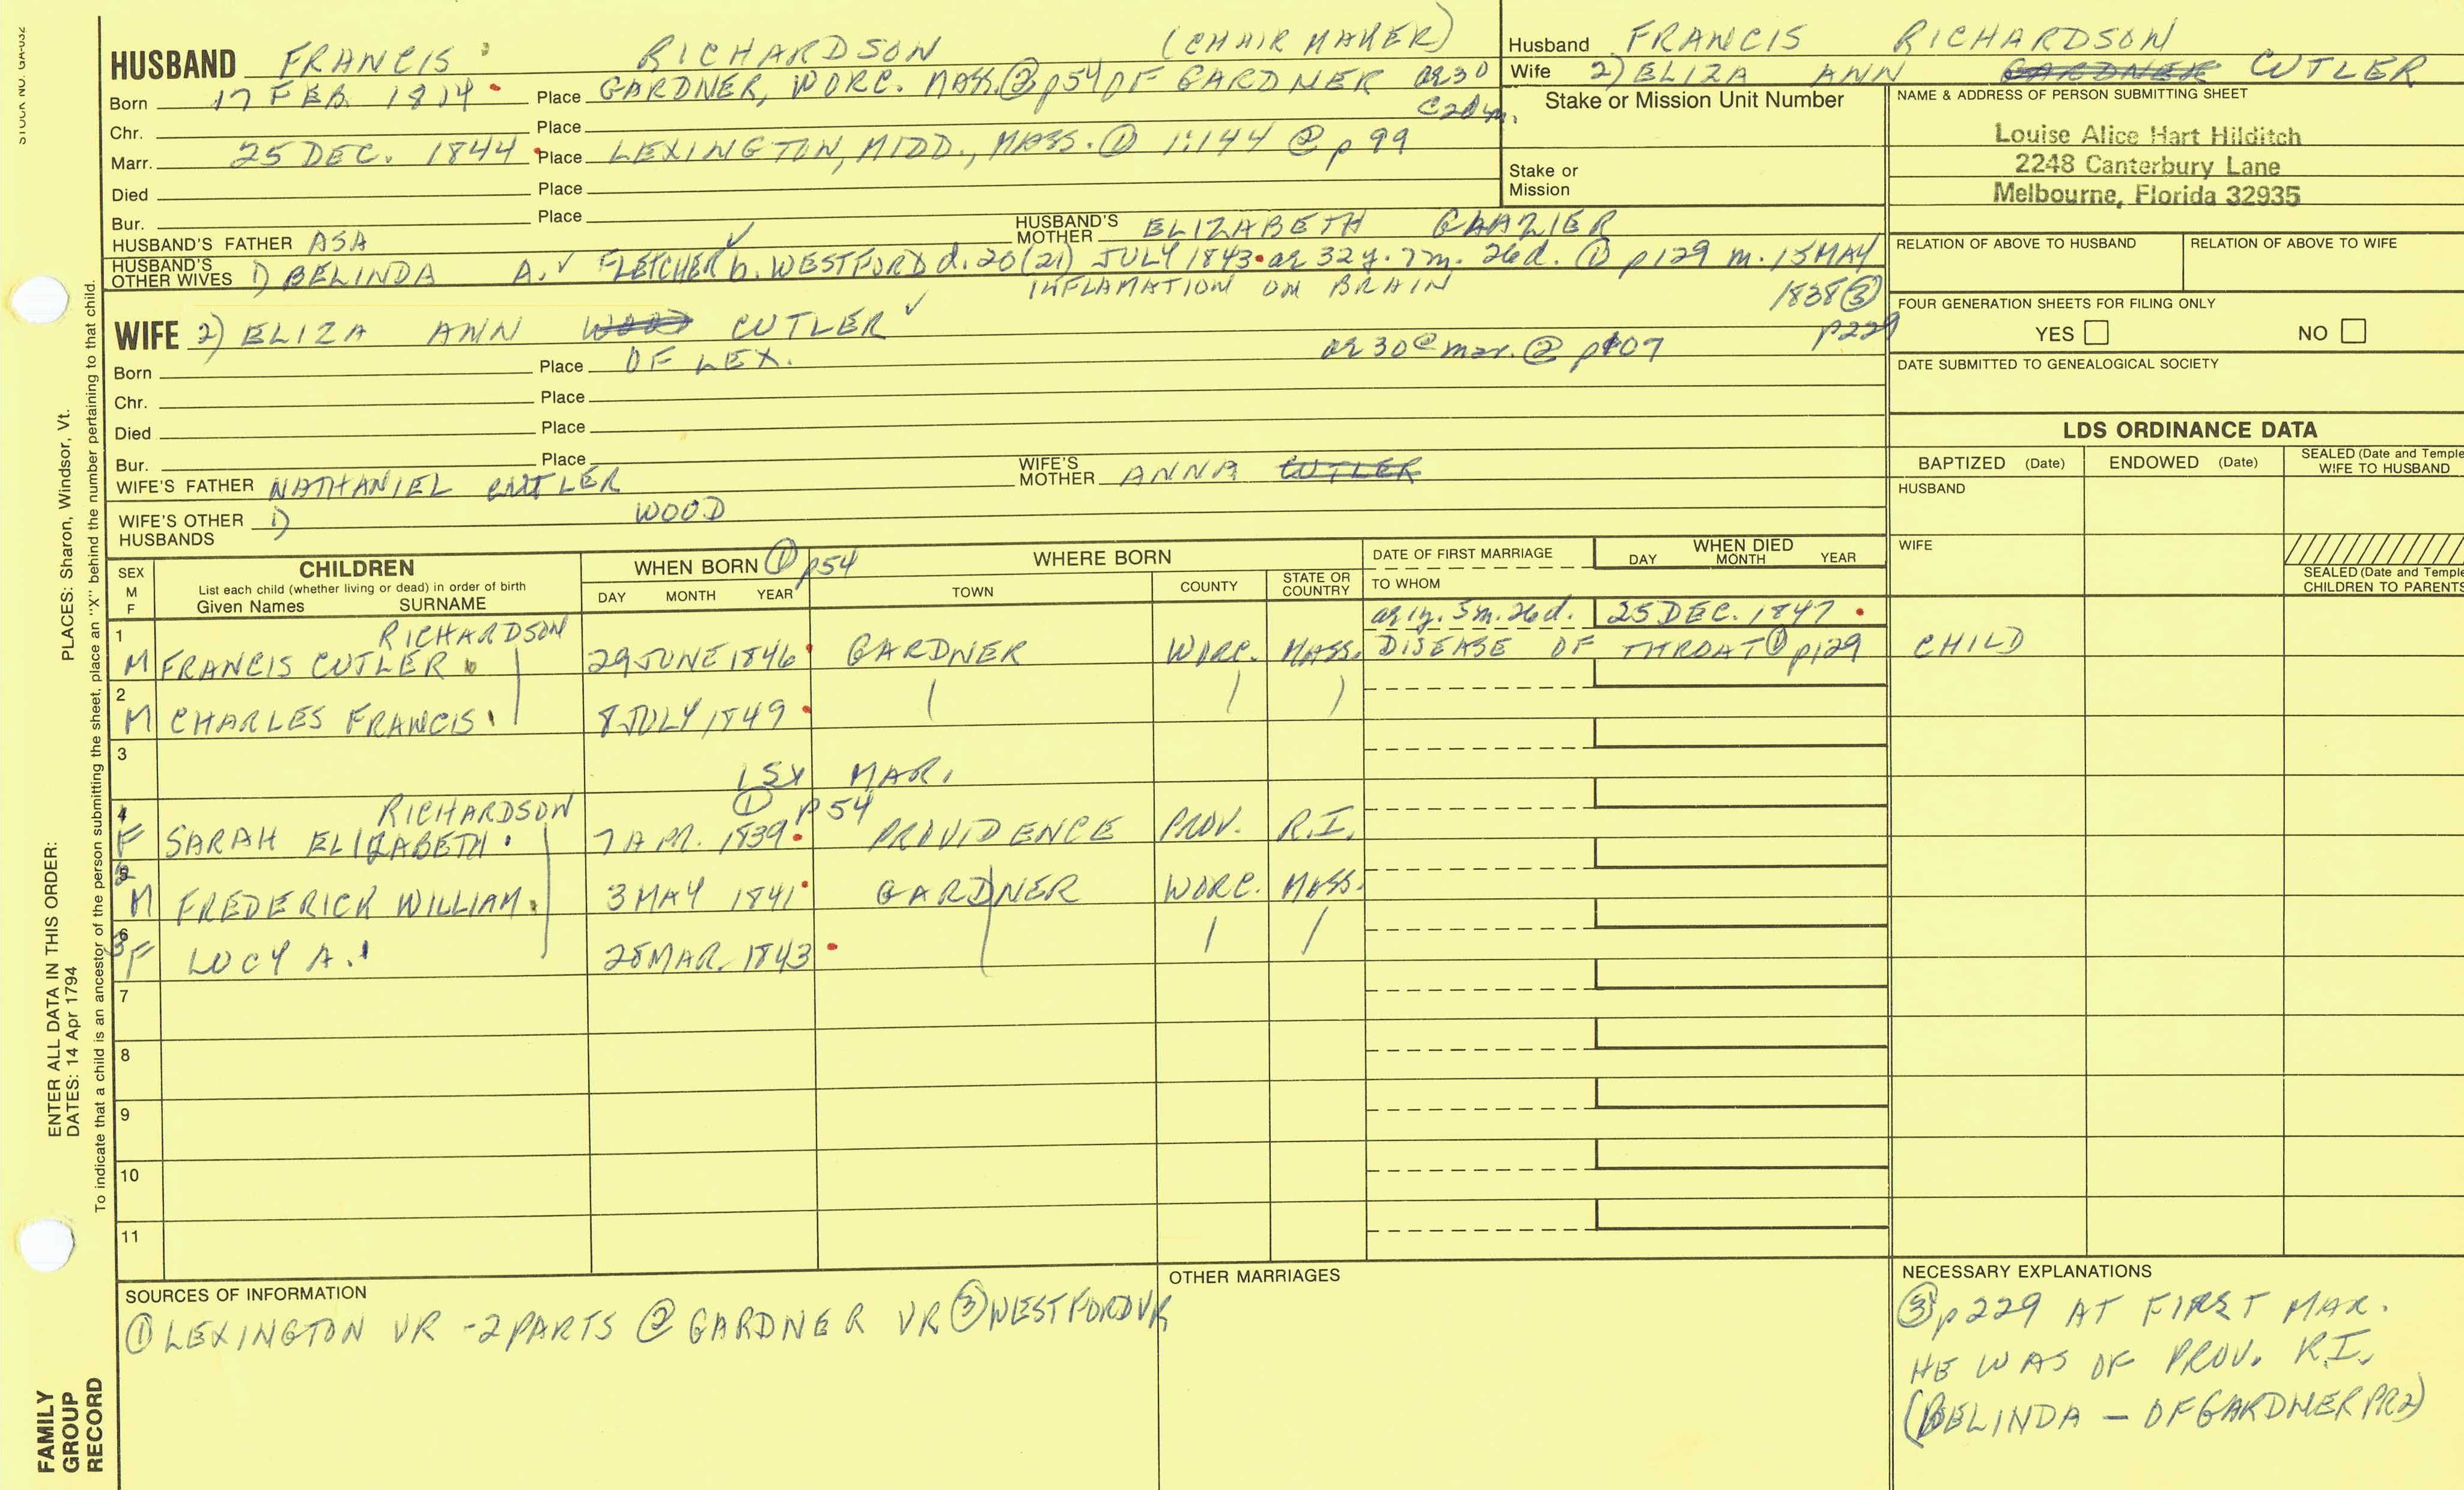 STOCK NO. GA-032
HUSBAND FRANCIS RICHARDSON (CHAIR MAKER)
Born 17 FEB. 1814 Place GARDNER, WORC. MASS. ② p54 OF GARDNER ae 30
@ 2d m.
Chr. Place
Marr. 25 DEC. 1844 Place LEXINGTON, MIDD., MASS. ① 1:144 ② p 99
Died Place
Bur. Place
HUSBAND'S FATHER ASA HUSBAND'S MOTHER ELIZABETH GLAZIER
HUSBAND'S OTHER WIVES 1) BELINDA A. FLETCHER b. WESTFORD d. 20(21) JULY 1843 ae 32y. 7m. 26d. ① p129 m. 15 MAY
INFLAMATION ON BRAIN 1838 ③
p229
WIFE 2) ELIZA ANN WOOD CUTLER
Born Place OF LEX. ae 30 @ mar. ② p107
Chr. Place
Died Place
Bur. Place
WIFE'S FATHER NATHANIEL CUTLER WIFE'S MOTHER ANNA CUTLER
WIFE'S OTHER HUSBANDS 1) WOOD
Husband FRANCIS RICHARDSON
Wife 2) ELIZA ANN GARDNER CUTLER
Stake or Mission Unit Number
Stake or
Mission
NAME & ADDRESS OF PERSON SUBMITTING SHEET
Louise Alice Hart Hilditch
2248 Canterbury Lane
Melbourne, Florida 32935
RELATION OF ABOVE TO HUSBAND RELATION OF ABOVE TO WIFE
FOUR GENERATION SHEETS FOR FILING ONLY
YES NO
DATE SUBMITTED TO GENEALOGICAL SOCIETY
LDS ORDINANCE DATA
BAPTIZED (Date) ENDOWED (Date) SEALED (Date and Temple)
WIFE TO HUSBAND
HUSBAND
WIFE
SEALED (Date and Temple)
CHILDREN TO PARENTS
SEX
M
F
CHILDREN
List each child (whether living or dead) in order of birth
Given Names SURNAME
WHEN BORN ① p54
DAY MONTH YEAR
WHERE BORN
TOWN COUNTY STATE OR COUNTRY
DATE OF FIRST MARRIAGE
TO WHOM
WHEN DIED
DAY MONTH YEAR
1 RICHARDSON ae 1y. 5m. 26d. 25 DEC. 1847
M FRANCIS CUTLER 29 JUNE 1846 GARDNER WORC. MASS. DISEASE OF THROAT ① p129 CHILD
2
M CHARLES FRANCIS 8 JULY 1849
3
1ST MAR.
4 RICHARDSON ① p54
F SARAH ELIZABETH 7 APR. 1839 PROVIDENCE PROV. R.I.
5 2
M FREDERICK WILLIAM 3 MAY 1841 GARDNER WORC. MASS.
6
3 F LUCY A. 28 MAR. 1843
7
8
9
10
11
SOURCES OF INFORMATION
① LEXINGTON VR - 2 PARTS ② GARDNER VR ③ WESTFORD VR
OTHER MARRIAGES
NECESSARY EXPLANATIONS
③ p229 AT FIRST MAR.
HE WAS OF PROV. R.I.
(BELINDA – OF GARDNER PR2)
PLACES: Sharon, Windsor, Vt.
ENTER ALL DATA IN THIS ORDER:
DATES: 14 Apr 1794
To indicate that a child is an ancestor of the person submitting the sheet, place an "X" behind the number pertaining to that child.
FAMILY
GROUP
RECORD